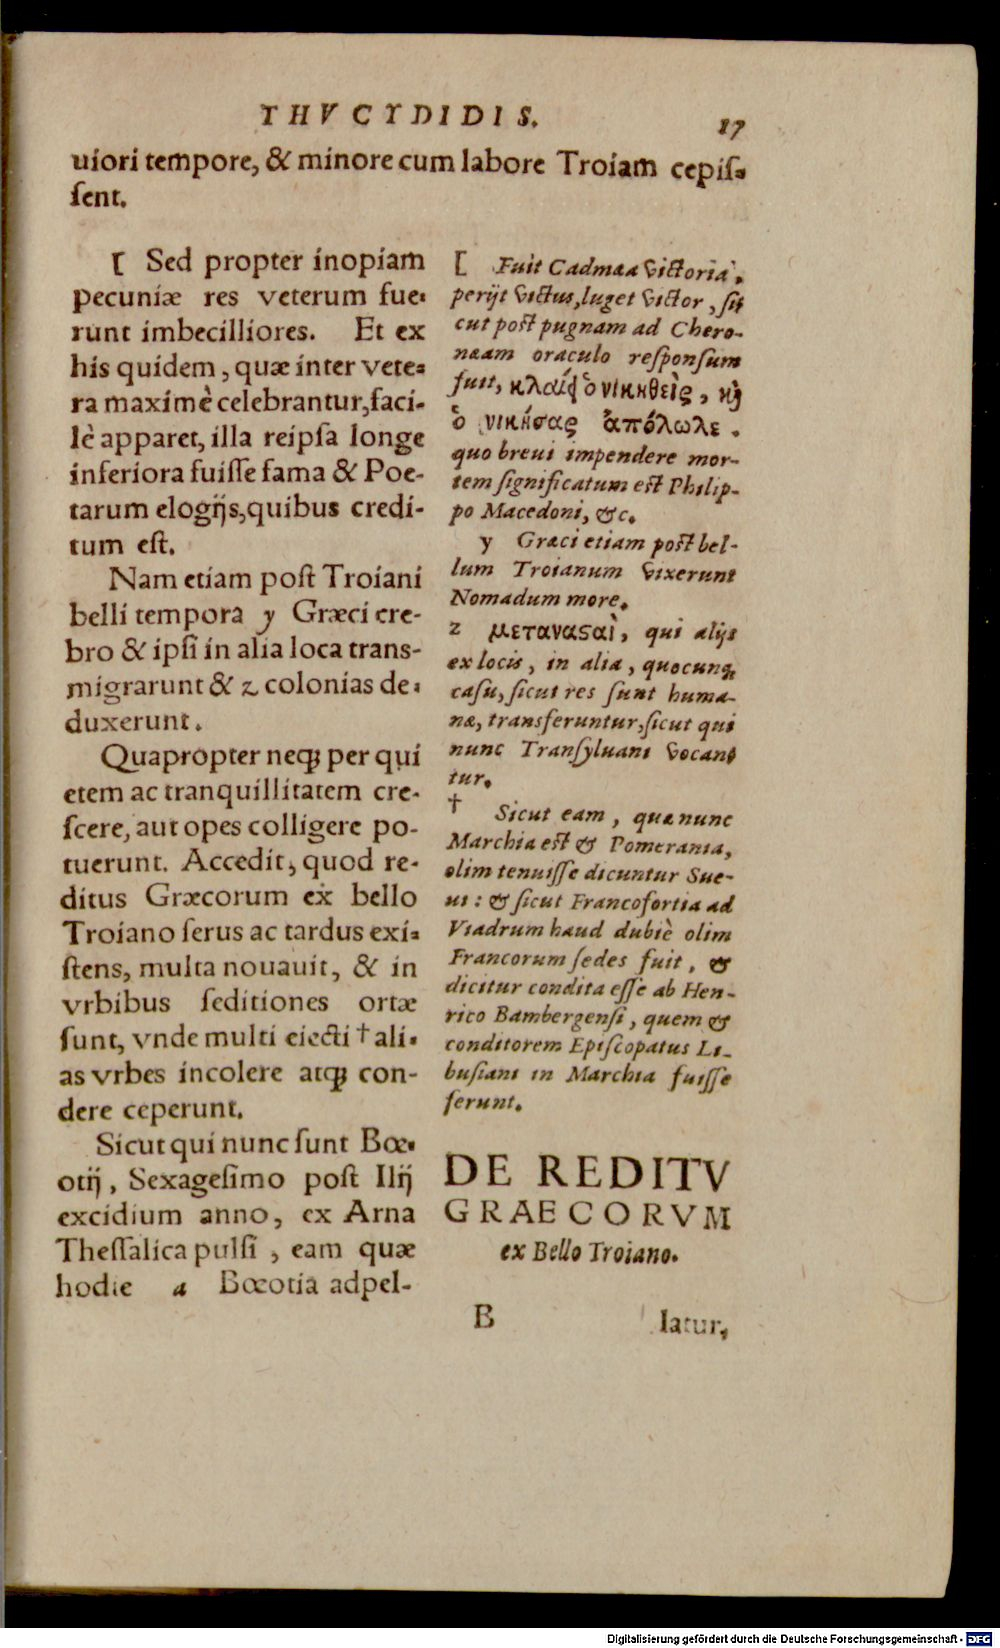 THVCYDIDIS.
17
uiori tempore, & minore cum labore Troiam cepiſ-
ſent.
[ Sed propter inopiam
pecuniæ res veterum fue-
runt imbecilliores. Et ex
his quidem, quæ inter vete-
ra maximè celebrantur, faci-
lè apparet, illa reipſa longe
inferiora fuiſſe fama & Poe-
tarum elogijs, quibus credi-
tum eſt.
Nam etiam poſt Troiani
belli tempora y Græci cre-
bro & ipſi in alia loca trans-
migrarunt & z colonias de-
duxerunt.
Quapropter neqꝫ per qui
etem ac tranquillitatem cre-
ſcere, aut opes colligere po-
tuerunt. Accedit, quod re-
ditus Græcorum ex bello
Troiano ſerus ac tardus exi-
ſtens, multa nouauit, & in
vrbibus ſeditiones ortæ
ſunt, vnde multi eiecti † ali-
as vrbes incolere atqꝫ con-
dere ceperunt.
Sicut qui nunc ſunt Bœ-
otij, Sexageſimo poſt Ilij
excidium anno, ex Arna
Theſſalica pulſi, eam quæ
hodie a Bœotia adpel-
[ Fuit Cadmæa victoria,
perijt victus, luget victor, ſi-
cut poſt pugnam ad Chero-
næam oraculo reſponſum
fuit, κλαίει ὁ νικηθεὶς, κὴ
ὁ νικήσας ἀπόλωλε.
quo breui impendere mor-
tem ſignificatum eſt Philip-
po Macedoni, &c.
y Græci etiam poſt bel-
lum Troianum vixerunt
Nomadum more.
z μεταναςαὶ, qui alijs
ex locis, in alia, quocunqꝫ
caſu, ſicut res ſunt huma-
næ, transferuntur, ſicut qui
nunc Tranſyluani vocan-
tur.
† Sicut eam, quæ nunc
Marchia eſt & Pomerania,
olim tenuiſſe dicuntur Sue-
ui: & ſicut Francofortia ad
Viadrum haud dubiè olim
Francorum ſedes fuit, &
dicitur condita eſſe ab Hen-
rico Bambergenſi, quem &
conditorem Epiſcopatus Li-
buſiani in Marchia fuiſſe
ferunt.
DE REDITV
GRAECORVM
ex Bello Troiano.
B
latur,
Digitalisierung gefördert durch die Deutsche Forschungsgemeinschaft - DFG